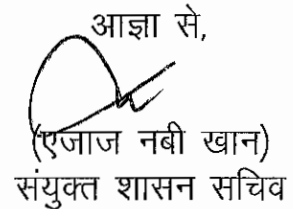 आज्ञा से,
(एजाज नबी खान)
संयुक्त शासन सचिव